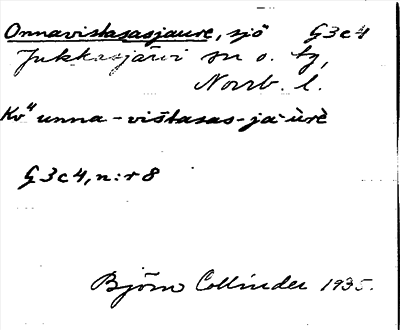 Onnavistasasjaure, sjö G3c4
Jukkasjärvi sn o. tg,
Norrb. l.
Kv" unna-vištasas-já·ùrè
G3c4, n:r 8
Björn Collinder 1935.